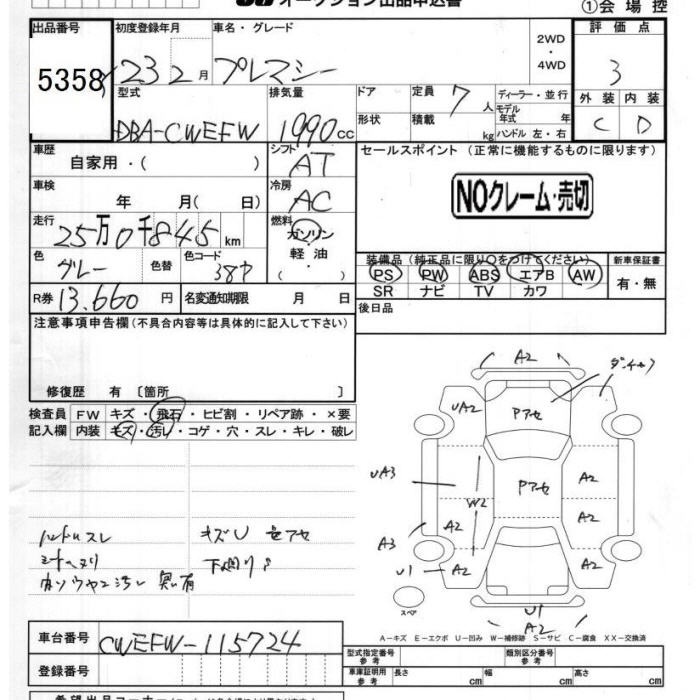 オークション出品申込書
①会場控
出品番号 初度登録年月 車名・グレード 2WD・4WD 評価点
5358 23 2月 プレマシー 3
型式 排気量 ドア 定員 7人 ディーラー・並行 外装 内装
DBA-CWEFW 1990cc 形状 積載 kg モデル年式 年 ハンドル 左・右 C D
車歴 自家用・( ) シフト AT セールスポイント (正常に機能するものに限ります)
車検 年 月( 日) 冷房 AC NOクレーム・売切
走行 25万0千845km 燃料 ガソリン
軽油
( ・ )
装備品(純正品に限り〇をつけてください) 新車保証書
色 グレー 色替 色コード 38P PS PW ABS エアB AW 有・無
SR ナビ TV カワ
R券 13.660円 名変通知期限 月 日 後日品
注意事項申告欄(不具合内容等は具体的に記入して下さい)
修復歴 有 〔箇所 〕
検査員 FW キズ・飛石・ヒビ割・リペア跡・×要
記入欄 内装 キズ・汚レ・コゲ・穴・スレ・キレ・破レ
ハンドルスレ キズU 色アセ
下廻り
A2
UA2 Pアセ A2
UA3 Pアセ A2
W2
A2 A2
A3
U1 A2 A2
スペア
U1
A2
A-キズ E-エクボ U-凹み W-補修跡 S-サビ C-腐食 XX-交換済
車台番号 CWEFW-115724 型式指定番号 参考 類別区分番号 参考
登録番号 車庫証明用 参考 長さ cm 幅 cm 高さ cm